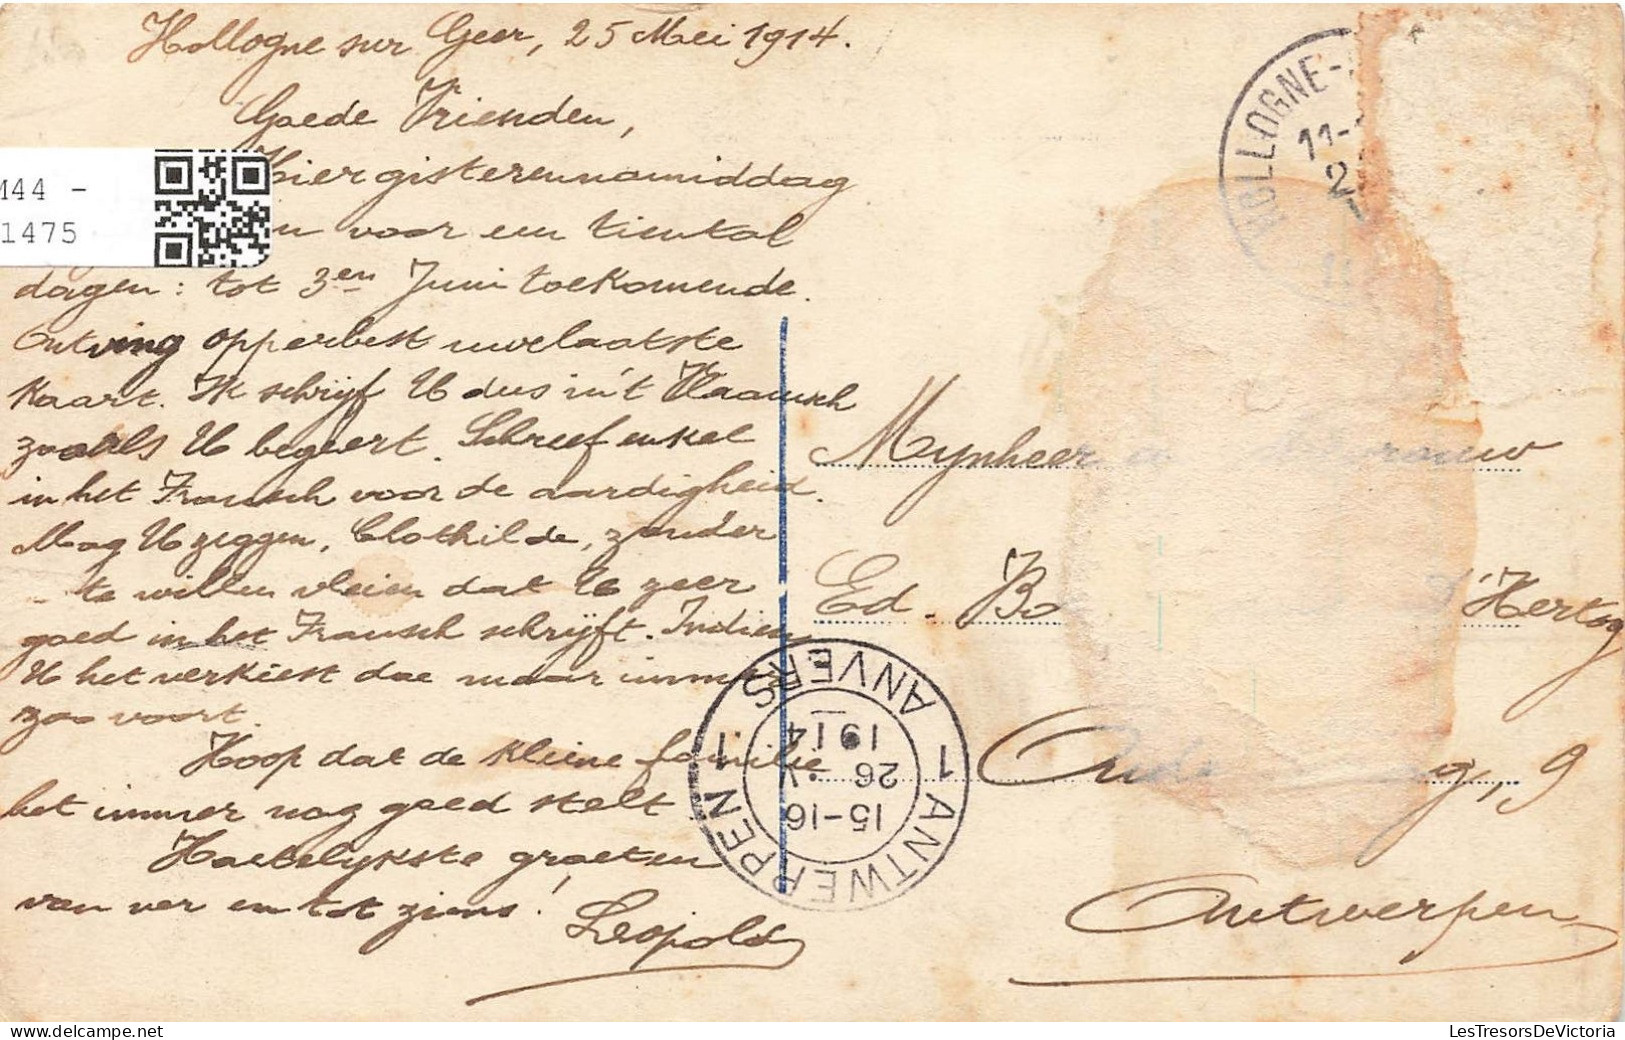 Hollogne sur Geer, 25 Mei 1914.
Goede Vrienden,
Hier gisterennamiddag
voor een tiental
dagen: tot 3en Juni toekomende.
Ontving opperbest uwe laatste
Kaart. Ik schrijf U dus in't Vlaamsch
zooals U begeert. Schreef enkel
in het Fransch voor de aardigheid.
Mag U zeggen, Clothilde, zonder
te willen vleien dat U zeer
goed in het Fransch schrijft. Indien
U het verkiest doe maar immer
zoo voort.
Hoop dat de kleine familie
het immer nog goed stelt.
Hartelijkste groeten
van ver en tot ziens!
Leopold
M44 -
1475
HOLLOGNE-
11-
2
Mynheer
Ed. Bo
d'Hertog
9
Antwerpen
1 ANTWERPEN 1 ANVERS
15-16
26 V
1914
LesTresorsDeVictoria.com
LesTresorsDeVictoria